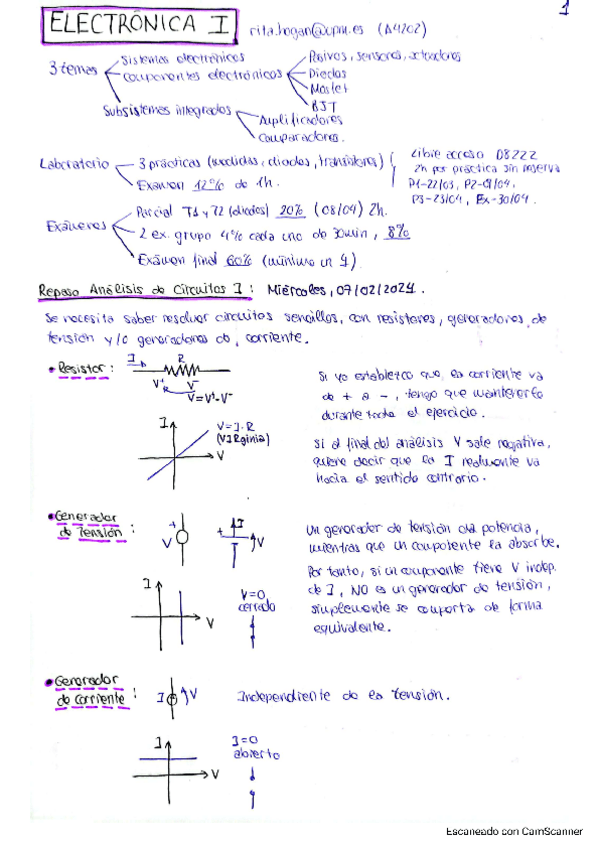 1
ELECTRÓNICA I rita.hogan@upm.es (A4202)
3 temas
Sistemas electrónicos
Componentes electrónicos
Pasivos, sensores, actuadores
Diodos
Mosfet
BJT
Subsistemas integrados
Amplificadores
Comparadores.
Laboratorio
3 prácticas (medidas, diodos, transistores)
Examen 12% de 1h.
Libre acceso D8222
2h por práctica sin reserva
P1-22/03, P2-04/04,
P3-23/04, Ex-30/04.
Exámenes
Parcial T1 y T2 (diodos) 20% (08/04) 2h.
2 ex. grupo 4% cada uno de 30min, 8%
Exámen final 60% (mínimo un 4)
Repaso Análisis de Circuitos I: Miércoles, 07/02/2024.
Se necesita saber resolver circuitos sencillos, con resistores, generadores de
tensión y/o generadores de corriente.
• Resistor:
I R
V+ V-
V=V+-V-
Si yo establezco que la corriente va
de + a -, tengo que mantenerlo
durante todo el ejercicio.
I
V=I·R
(VIRginia)
V
Si al final del análisis V sale negativa,
quiere decir que la I realmente va
hacia el sentido contrario.
• Generador
de Tensión:
+
V
+ I
V
Un generador de tensión da potencia,
mientras que un componente la absorbe.
Por tanto, si un componente tiene V indep.
de I, NO es un generador de tensión,
simplemente se comporta de forma
equivalente.
I
V
V=0
cerrado
• Generador
de corriente:
I V
Independiente de la tensión.
I
V
I=0
abierto
Escaneado con CamScanner